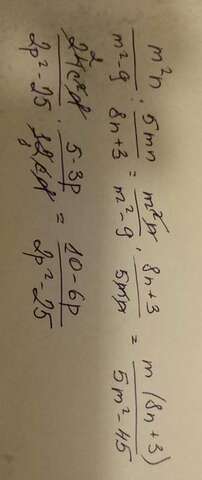 m²n / (m²-9) : 5mn / (8n+3) = m²n / (m²-9) · (8n+3) / 5mn = m(8n+3) / (5m²-45)
2 / (2p²-25) · (5-3p) = (10-6p) / (2p²-25)